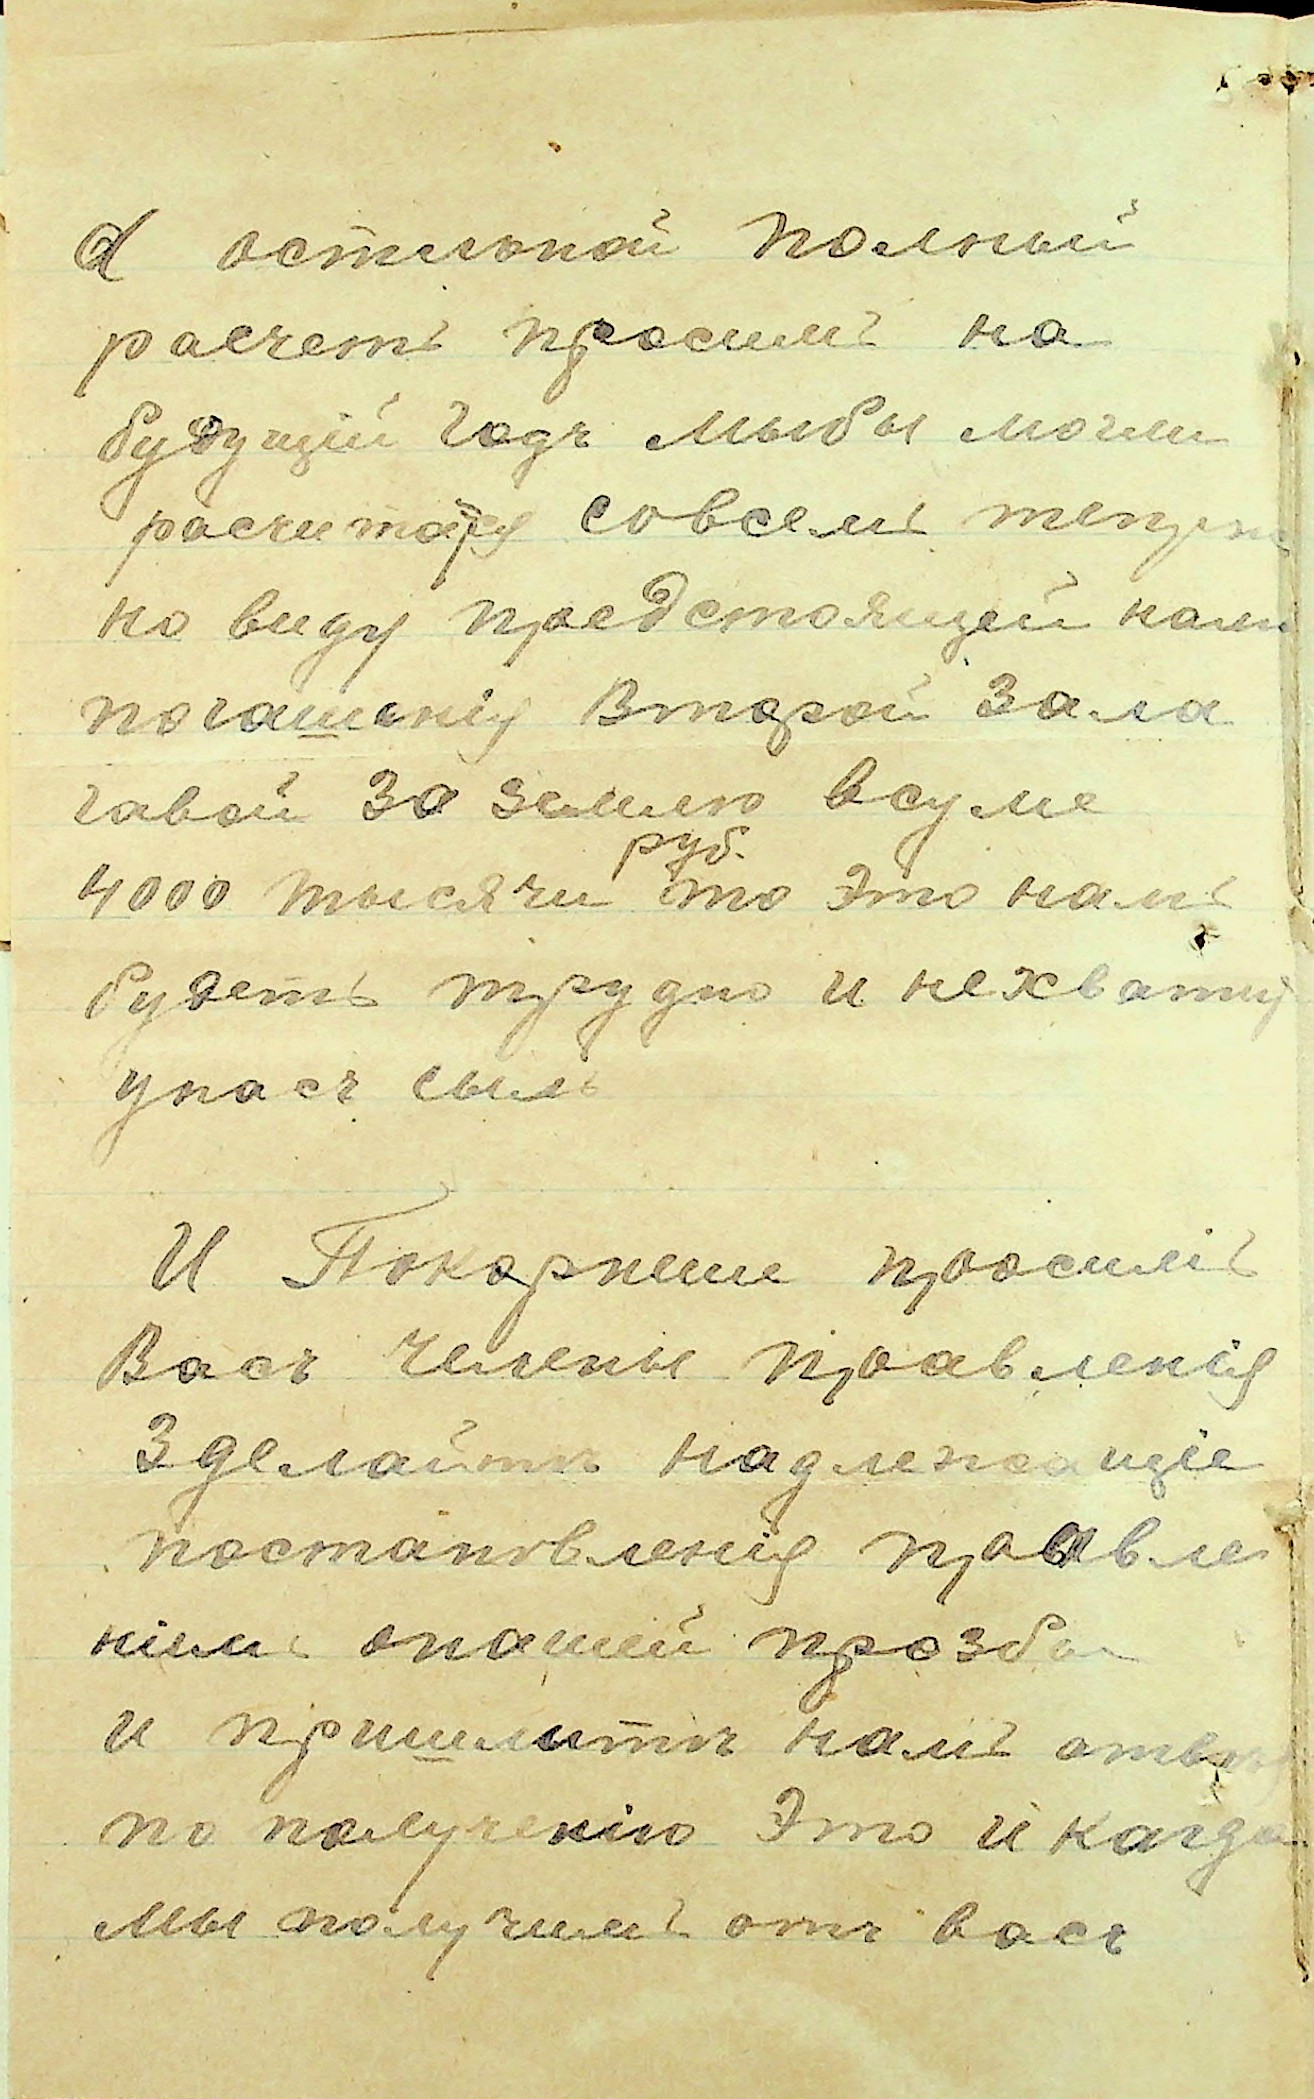 А остльной полный
расчетъ просимъ на
будущій годъ мыбы могли
расчитатся совсемъ
но виду предстоящей нам
погашенія Второй Зала
говой За землю всуме
4000 тысячи руб. то Это намъ
будетъ трудно и нехватит
унасъ сылъ
И Покорнеше проосимъ
Васъ Челены правленія
Зделайтъ надлежащіе
постановленія правле
ніемъ онашей прозбы
и пришлитъ намъ ответ
по получению Это и когда
мы получимъ отъ васъ